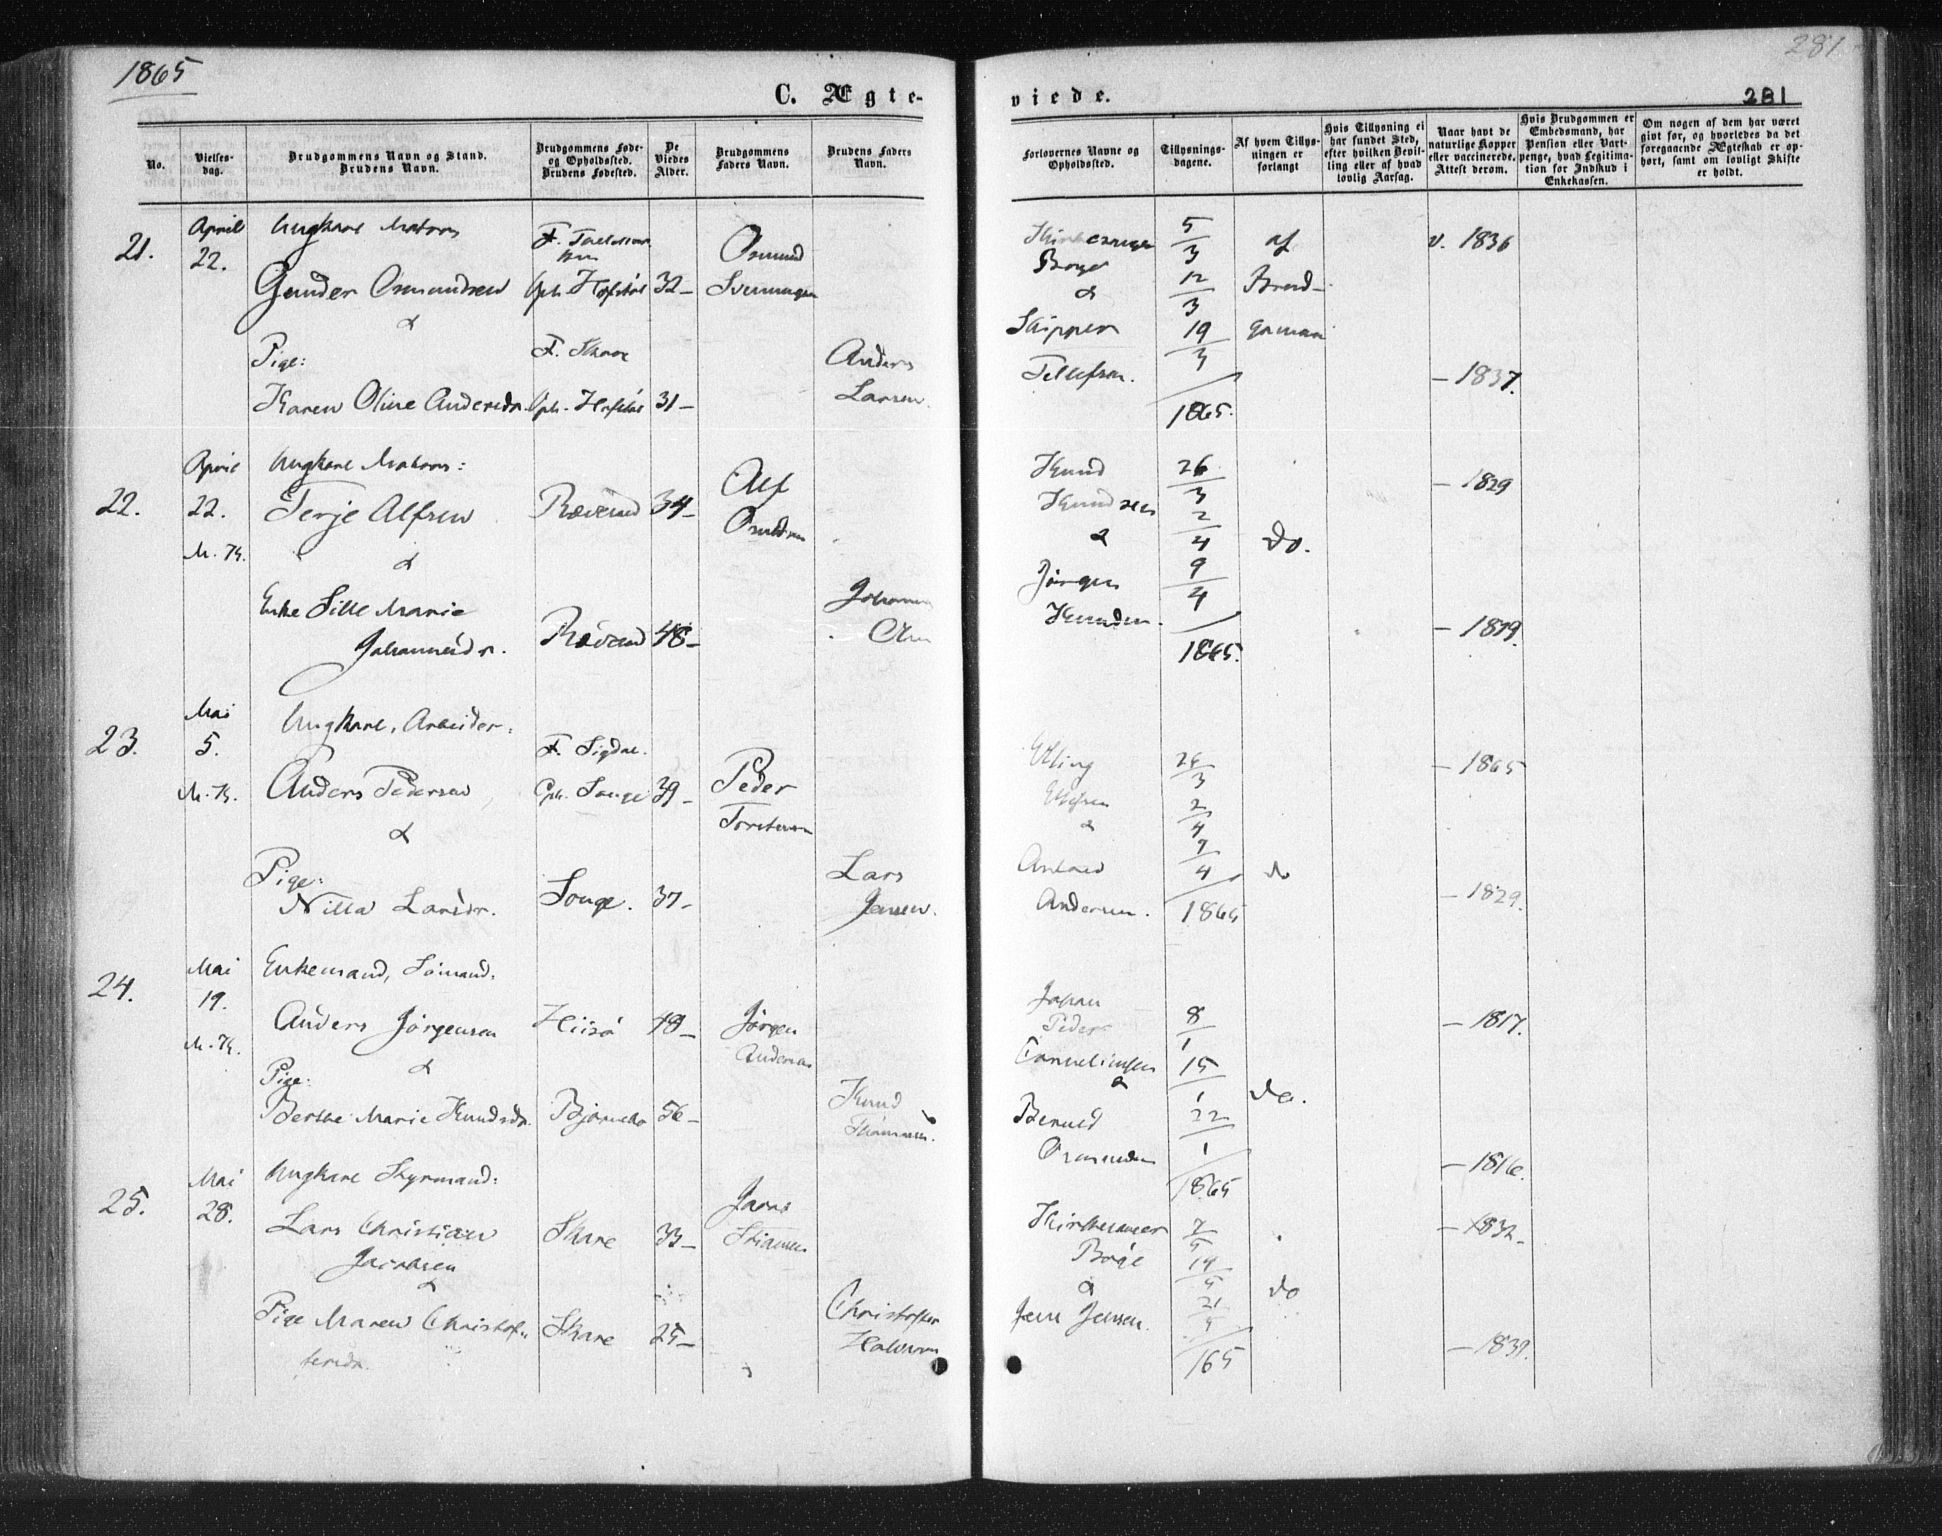 1865
281
C. Ægte-
viede.
281
No.
Vielses-
dag.
Brudgommens Navn og Stand.
Brudens Navn.
Brudgommens Føde-
og Opholdssted.
Brudens Fødested.
De
Viedes
Alder.
Brudgommens
Faders Navn.
Brudens Faders
Navn.
Forlovernes Navne og
Opholdssted.
Tillysnings-
dagene.
Af hvem Tillys-
ningen er
forlangt
Hvis Tillysning ei
har fundet Sted,
efter hvilken Bevil-
ling eller af hvad
lovlig Aarsag.
Naar havt de
naturlige Kopper
eller vaccinerede.
Attest derom.
Hvis Brudgommen er
Embedsmand, har
Pension eller Vart-
penge, hvad Legitima-
tion for Indskud i
Enkekassen.
Om nogen af dem har været
givt før, og hvorledes da det
foregaaende Ægteskab er op-
hørt, samt om lovligt Skifte
er holdt.
21.
April
22.
Ungkarl Matros
Gunder Osmundsen
&
Pige:
Karen Oline Andersdr.
F.
Oph.
32-
F. Skare
Oph.
31-
Osmund
Anders
Larsen.
Børge
&
Skipper
Tellefsen.
5/3
12/3
19/3
1865.
af
Brud-
v. 1836
- 1837.
22.
April
22.
M. K.
Ungkarl Matros:
Terje Alfsen
&
Enke Sille Marie
Johannesdr.
Rævesand
34-
Rævesand
48-
Alf
Knud
Knudsen
&
Jørgen
Knudsen.
26/3
2/4
9/4
1865.
Do.
- 1829
- 1829.
23.
Mai
5.
M. K.
Ungkarl, Arbeider:
Anders Pedersen
&
Pige:
Nilla Larsdr.
F. Sigdal.
Oph. Songe
39-
Songe.
37-
Peder
Torstensen
Lars
Jensen.
&
Andersen.
26/3
2/4
9/4
1865
do
- 1865
- 1829.
24.
Mai
19.
M. K.
Enkemand, Sømand:
Anders Jørgensen
&
Pige:
Berthe Marie Knudsdr.
Hiisø
48-
56-
Jørgen
Andersen
Knud
Johan
Peder
&
Berned
8/1
15/1
22/1
1865
do.
- 1817.
- 1816.
25.
Mai
28.
Ungkarl Styrmand:
Lars Christian
Jacobsen
&
Pige Maren Christof-
fersdr.
Skare
33-
Skare
25-
Christoffer
Halvorsen
Børge
&
Jens Jensen.
7/5
14/5
21/5
165
do
- 1832-
- 1839.